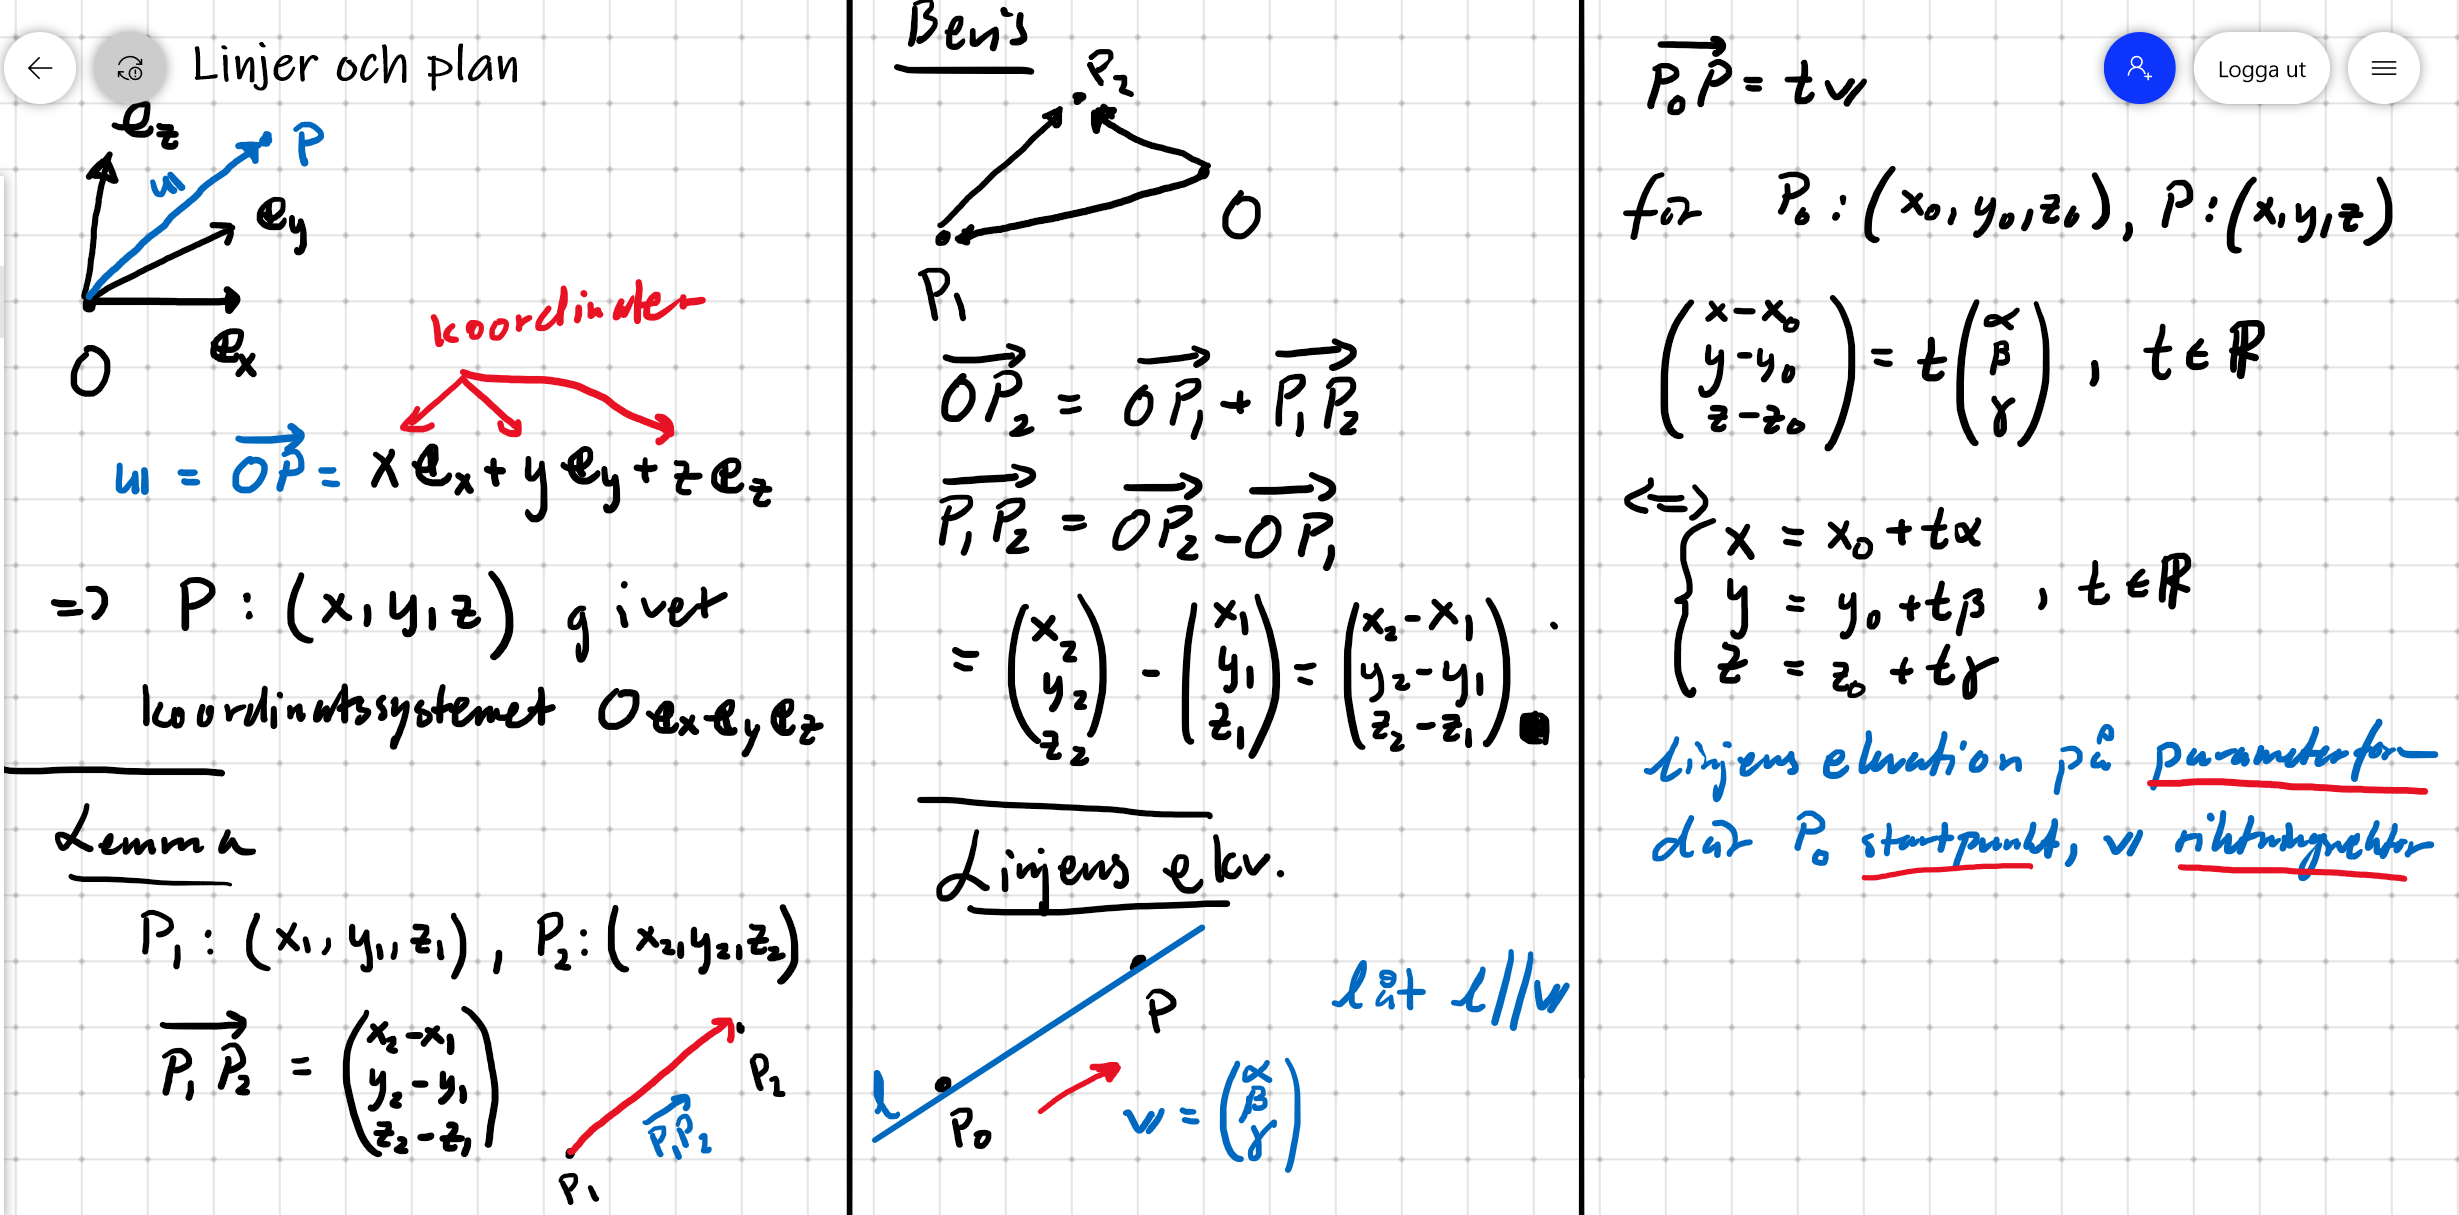 Linjer och plan
Logga ut
e_z
u
P
e_y
e_x
O
koordinater
u = \overrightarrow{OP} = x e_x + y e_y + z e_z
=> P : (x, y, z) givet
koordinatssystemet O e_x e_y e_z
Lemma
P_1 : (x_1, y_1, z_1), P_2 : (x_2, y_2, z_2)
\overrightarrow{P_1P_2} = \begin{pmatrix} x_2 - x_1 \\ y_2 - y_1 \\ z_2 - z_1 \end{pmatrix}
P_2
\overrightarrow{P_1P_2}
P_1
Bevis
P_2
O
P_1
\overrightarrow{OP_2} = \overrightarrow{OP_1} + \overrightarrow{P_1P_2}
\overrightarrow{P_1P_2} = \overrightarrow{OP_2} - \overrightarrow{OP_1}
= \begin{pmatrix} x_2 \\ y_2 \\ z_2 \end{pmatrix} - \begin{pmatrix} x_1 \\ y_1 \\ z_1 \end{pmatrix} = \begin{pmatrix} x_2 - x_1 \\ y_2 - y_1 \\ z_2 - z_1 \end{pmatrix} . ■
Linjens ekv.
P
låt l // v
l
P_0
v = \begin{pmatrix} α \\ β \\ γ \end{pmatrix}
\overrightarrow{P_0P} = t v
för P_0 : (x_0, y_0, z_0), P : (x, y, z)
\begin{pmatrix} x - x_0 \\ y - y_0 \\ z - z_0 \end{pmatrix} = t \begin{pmatrix} α \\ β \\ γ \end{pmatrix}, t ∈ ℝ
<=>
x = x_0 + tα
y = y_0 + tβ , t ∈ ℝ
z = z_0 + tγ
linjens ekvation på parameterform
där P_0 startpunkt, v riktningvektor